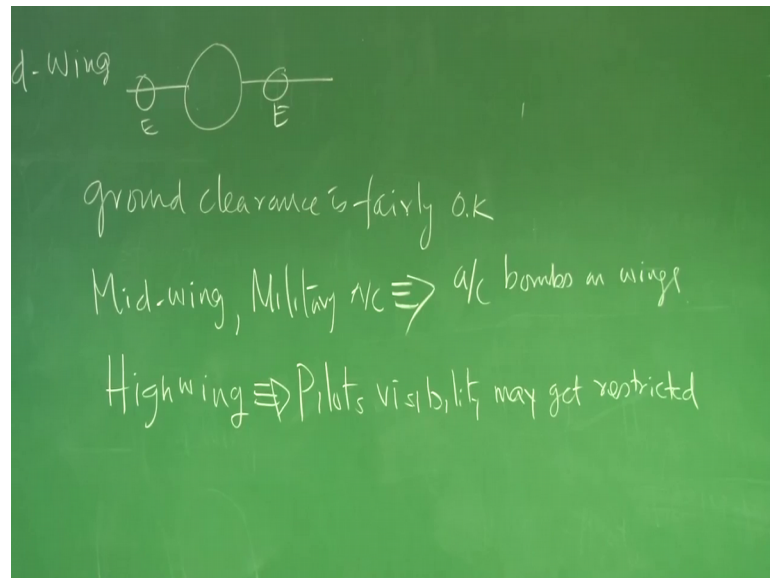 d-wing
E E
ground clearance is fairly O.K
Mid-wing, Military A/C ⇛ a/c bombs on wings
Highwing ⇛ Pilots visibility may get restricted